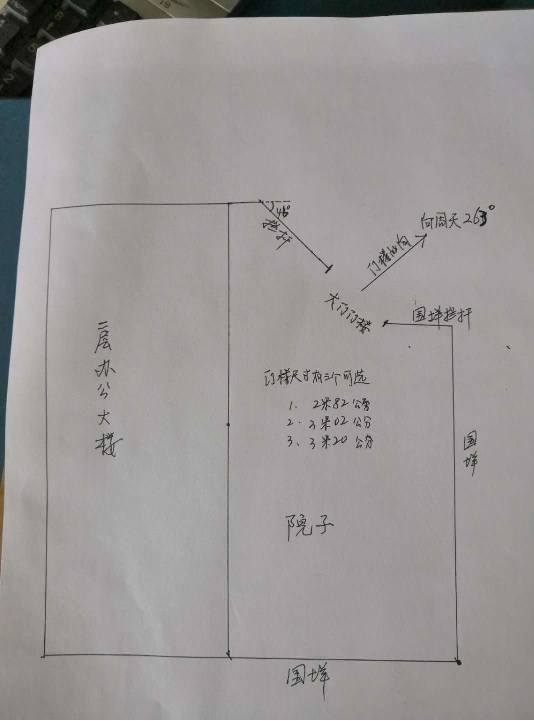 46°
拦杆
向周天263°
门楼山向
大门门楼
围垟拦杆
二层办公大楼
门楼尺寸有三个可选
1. 2米82公分
2. 3米02公分
3、3米20公分
围垟
院子
围垟